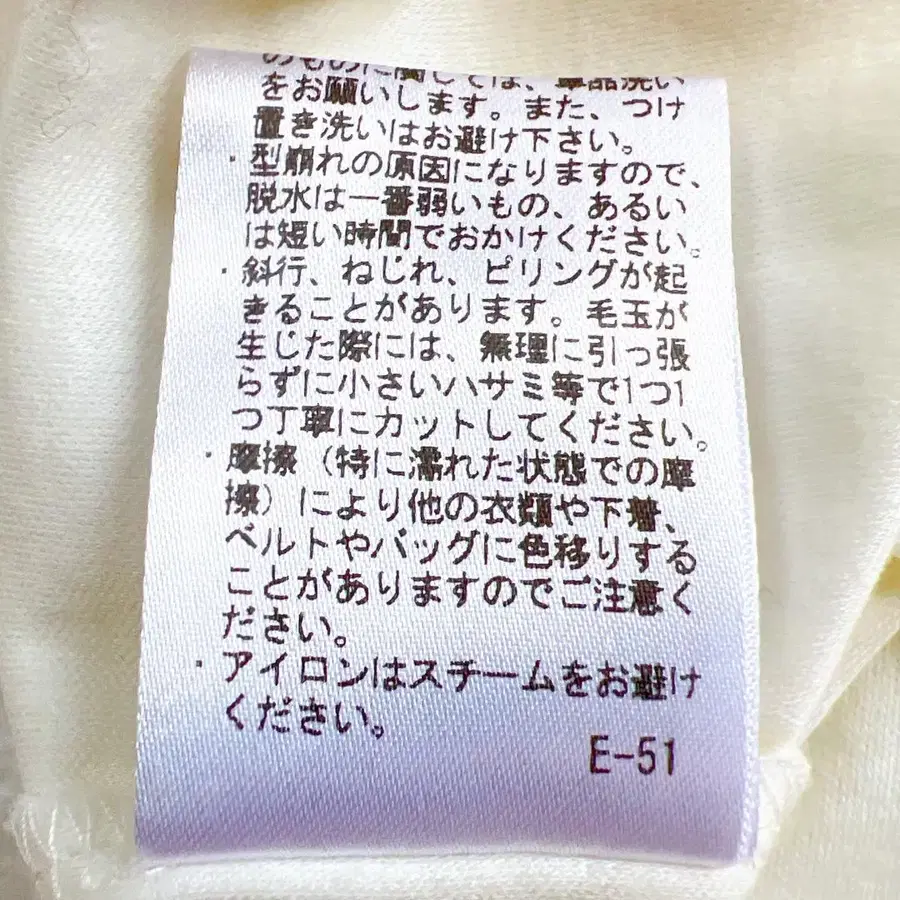 のものに関しては、単品洗い
をお願いします。また、つけ
置き洗いはお避け下さい。
・型崩れの原因になりますので、
脱水は一番弱いもの、あるい
は短い時間でおかけください。
・斜行、ねじれ、ピリングが起
きることがあります。毛玉が
生じた際には、無理に引っ張
らずに小さいハサミ等で1つ1
つ丁寧にカットしてください。
・摩擦（特に濡れた状態での摩
擦）により他の衣類や下着、
ベルトやバッグに色移りする
ことがありますのでご注意く
ださい。
・アイロンはスチームをお避け
ください。
E-51